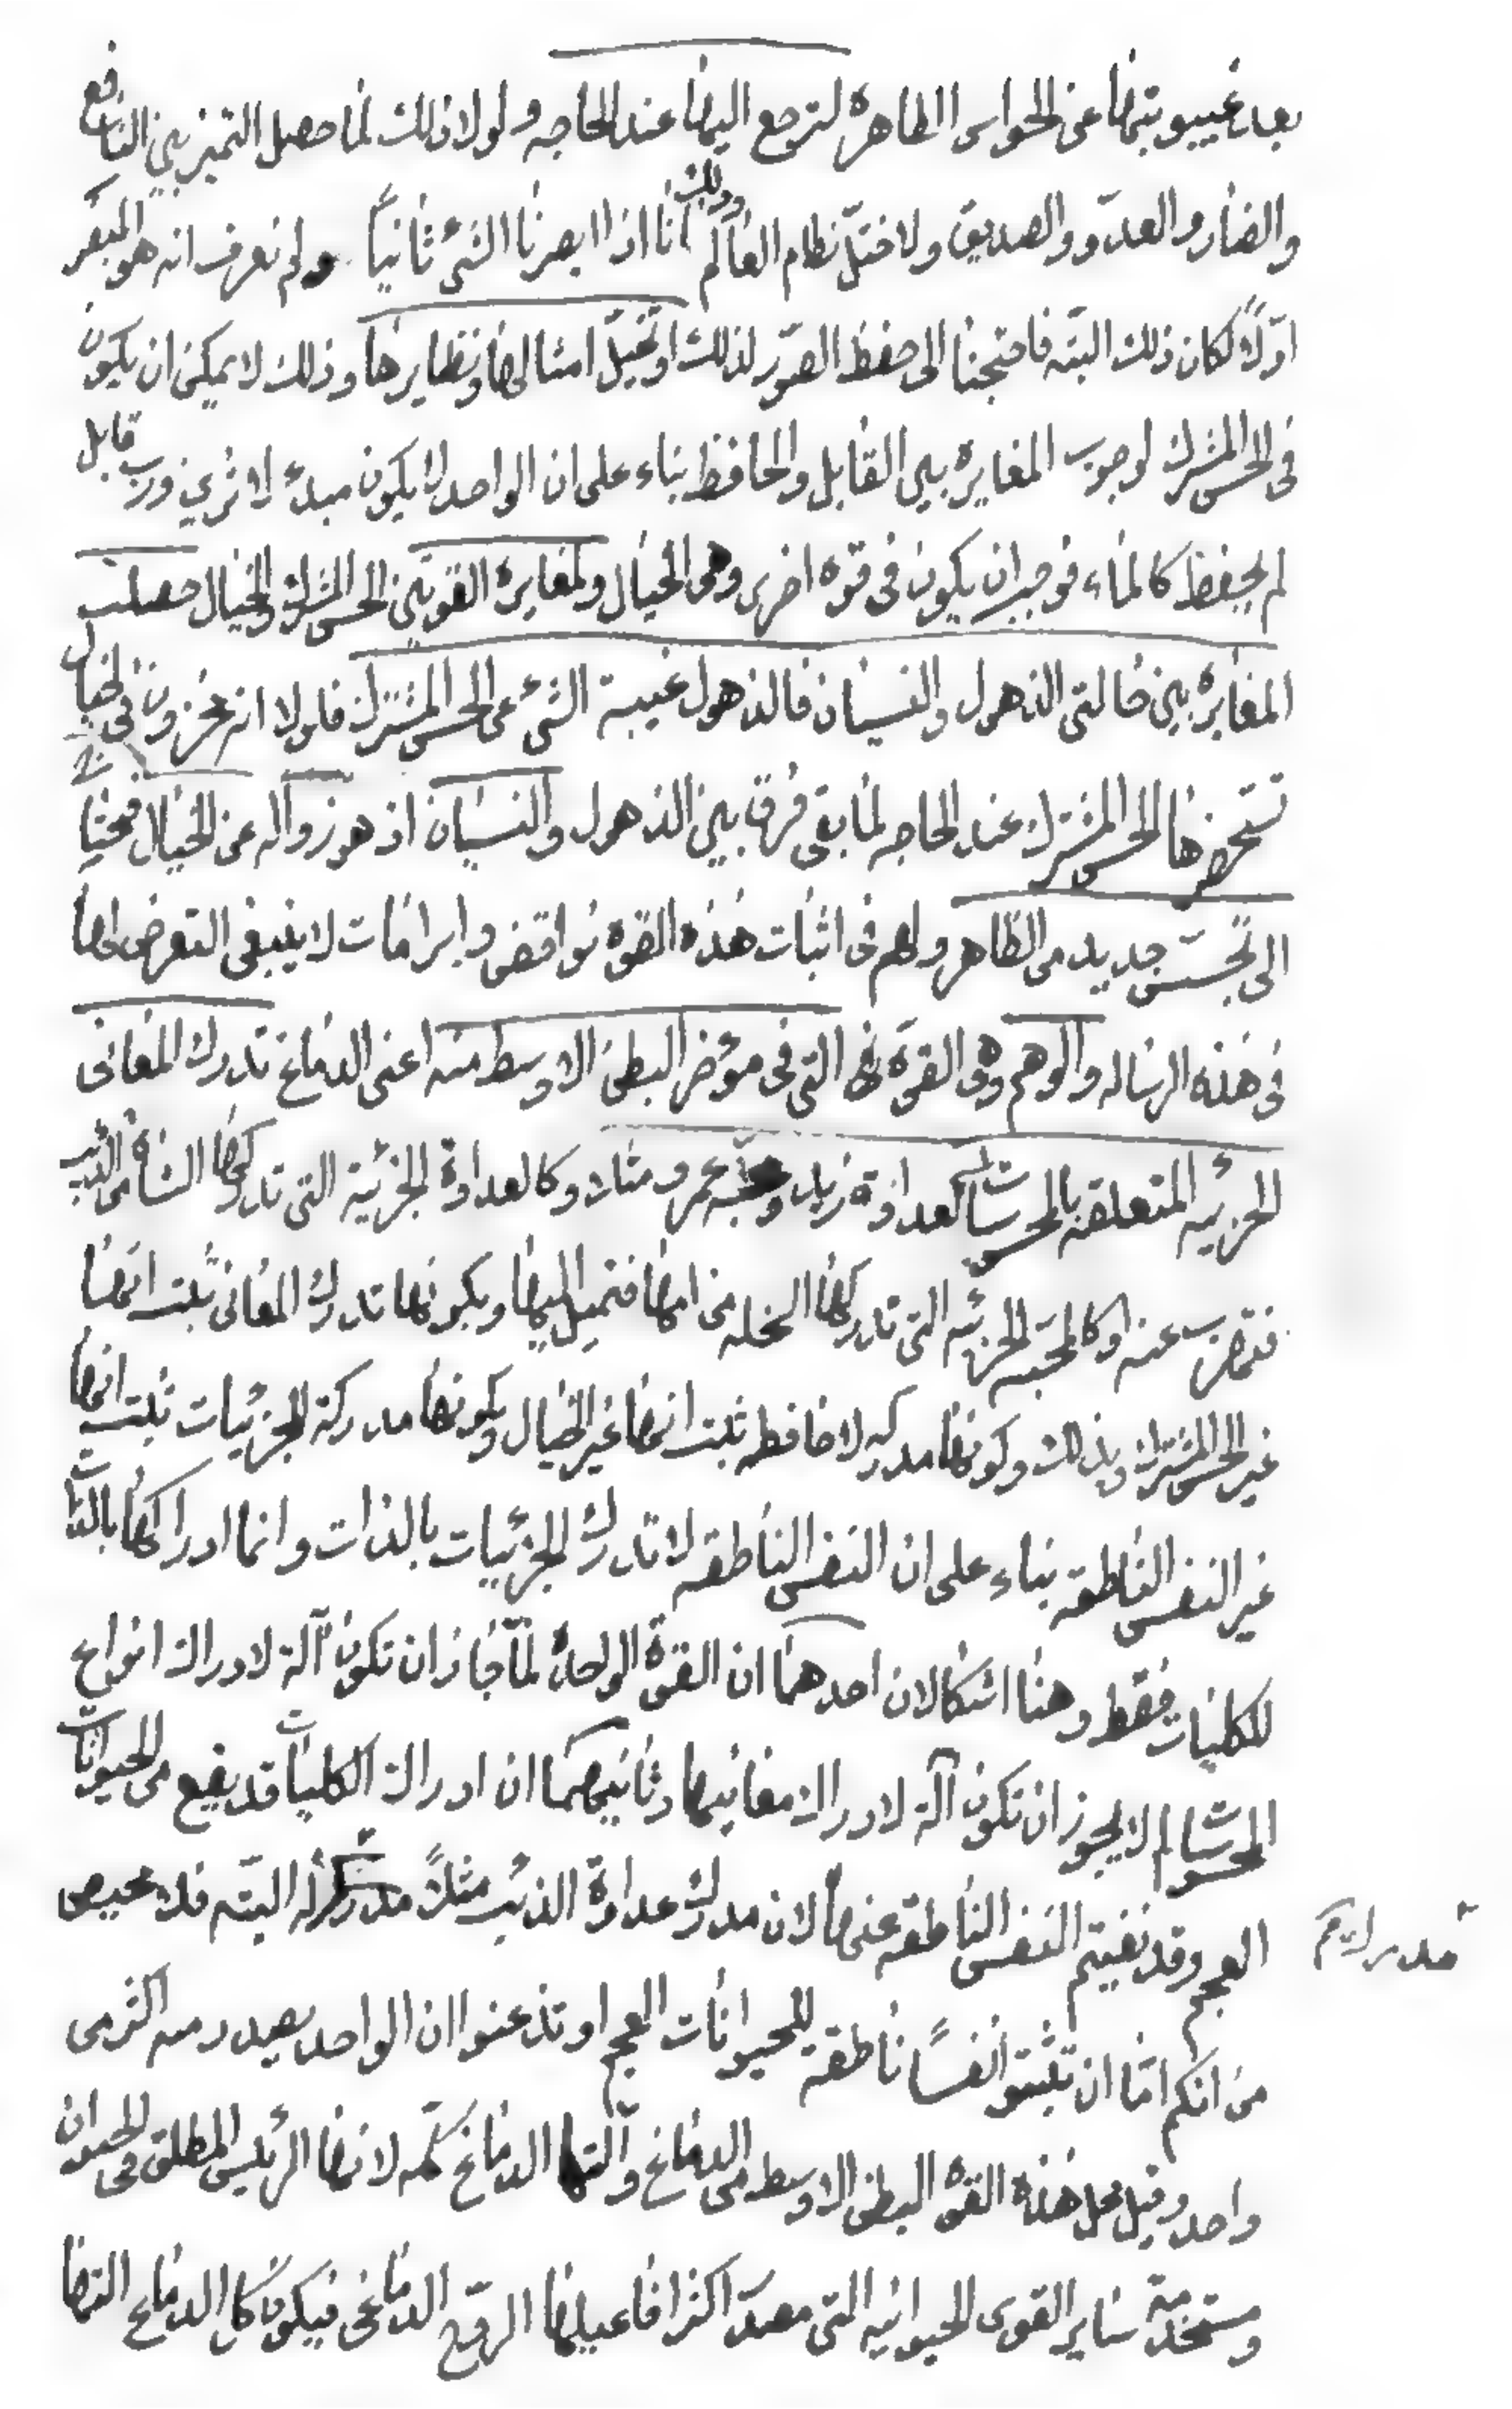 بعد غيبوبتها عن الحواس الظاهره لترجع اليها عند الحاجه ولولا ذلك لما حصل التميز بين النافع
والضار والعدوّ والصديق ولاختلّ نظام العالم وذلك انا اذا ابصرنا الشئ ثانياً ولم نعرف انه هو المبصر
اوّلاً لكان ذلك البتّه فاحتجنا الى حفظ الصوّر لذلك او تخيّل امثالها ونظايرها وذلك لا يمكن ان يكون
فى الحس المشترك لوجوب المغايره بين القابل والحافظ بناء على ان الواحد لا يكون مبدء لاثرين ورب قابل
لم يحفظ كالماء فوجب ان يكون فى قوه اخرى وهى الخيال ولمغايرة القوتين الحس المشترك والخيال حصلت
المغايره بين حالتى الذهول والنسيان فالذهول غيبة الشئ عن الحس المشترك فلولا انه مخزون فى الخيال
تستحضرها الحس المشترك عند الحاجه لما بقى فرق بين الذهول والنسيان اذ هو زواله عن الخيال فيحتاج
الى تحسّس جديد من الظاهر ولهم فى اثبات هذه القوه نواقض وابرامات لا ينبغى التعرض لها
فى هذه الرساله والوهم وهى القوّه التى فى مؤخر البطن الاوسط منه اعنى الدماغ تدرك المعانى
الجزئيه المتعلقه بالمحسوسات كعداوة زيد ومحبّة عمرو مثلا وكالعداوة الجزئية التى تدركها الشاة من الذئب
فتهرب عنه وكالمحبّه الجزئيه التى تدركها السخله من امها فتميل اليها وبكونها تدرك المعانى ثبت انها
غير الحس المشترك وبذلك وكونها مدركه لا حافظه ثبت انها غير الخيال وبكونها مدركة للجزئيات ثبت انها
غير النفس الناطقه بناء على ان النفس الناطقه لا تدرك الجزئيات بالذات وانما ادراكها بالذات
للكليات فقط وهنا اشكالان احدهما ان القوّة الواحدة لمّا جاز ان تكون آلة لادراك انواع
المحسوسات لم لا يجوز ان تكون آلة لادراك معانيها وثانيهما ان ادراك الكليات قد يقع من الحيوانات
العجم وقد نفيتم النفس الناطقه عنها لان مدرك عداوة الذئب مثلاً البتّه فلا محيص
من انكم امّا ان تثبتو نفساً ناطقة للحيوانات العجم او تذعنوا ان الواحد يصدر منه اكثر من
واحد وقيل محل هذه القوه البطن الاوسط من الدماغ وآلتها الدماغ كلّه لانها الرئيس المطلق فى الحيوان
ومستخدمة ساير القوى الحيوانيه التى مصدر اكثر افاعيلها الروح الدماغى فيكون كل الدماغ آلتها